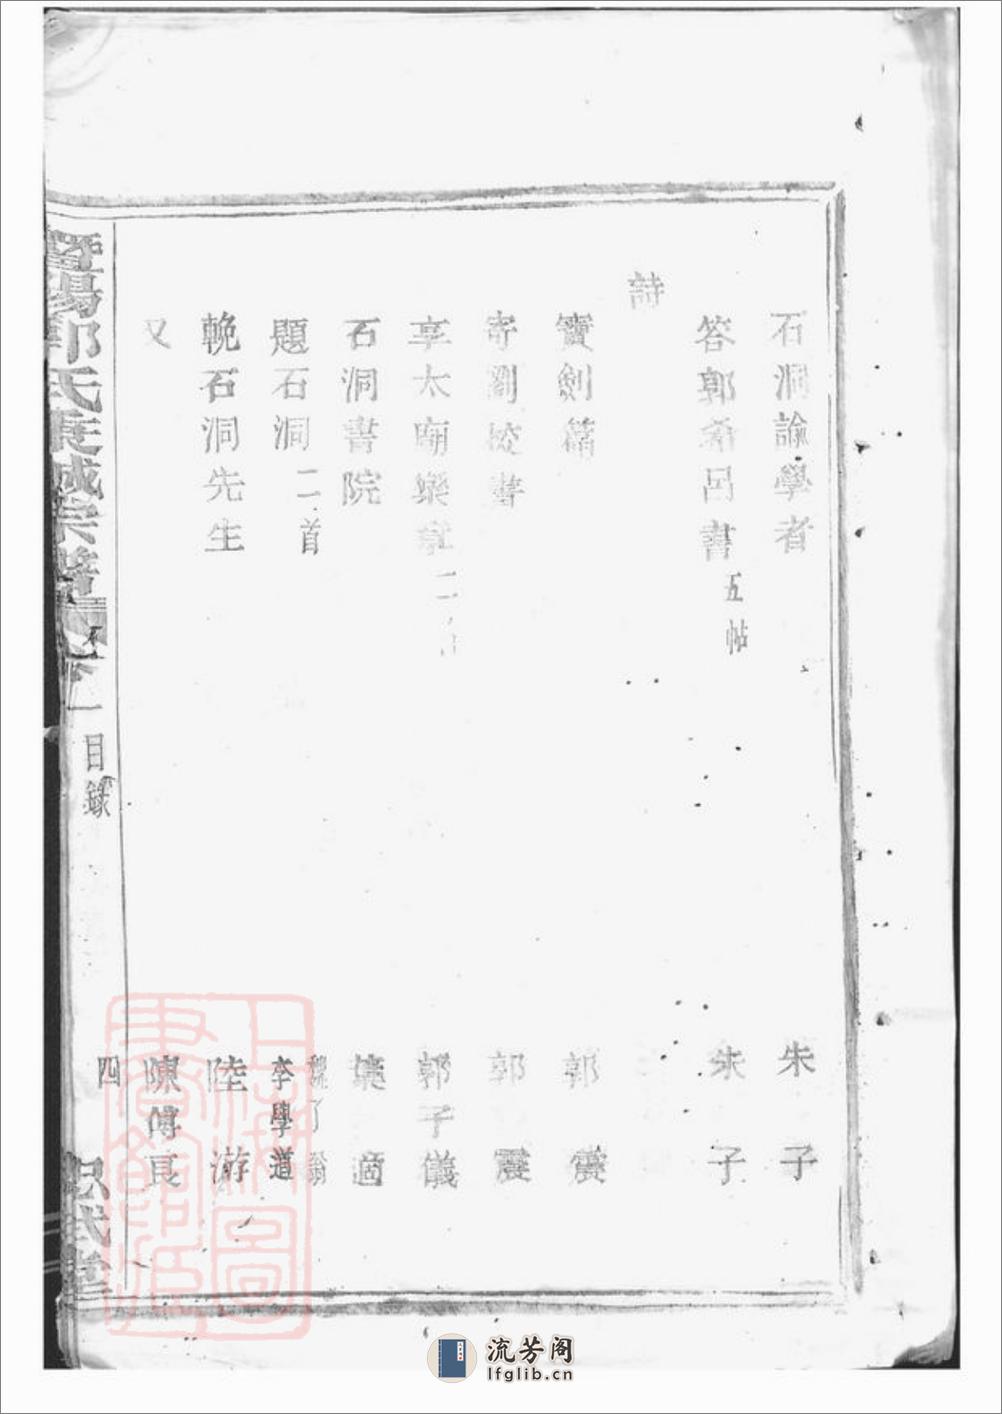 石洞諭學者　朱子
答郭希呂書 五帖　朱子
詩
寶劍篇　郭震
寄劉校書　郭震
享太廟樂章 二　郭子儀
石洞書院　葉適
題石洞 二首　魏了翁 李學道
輓石洞先生　陸游
又　陳傅良
暨陽郭氏 宗譜 一 目錄 四
流芳阁
lfglib.cn